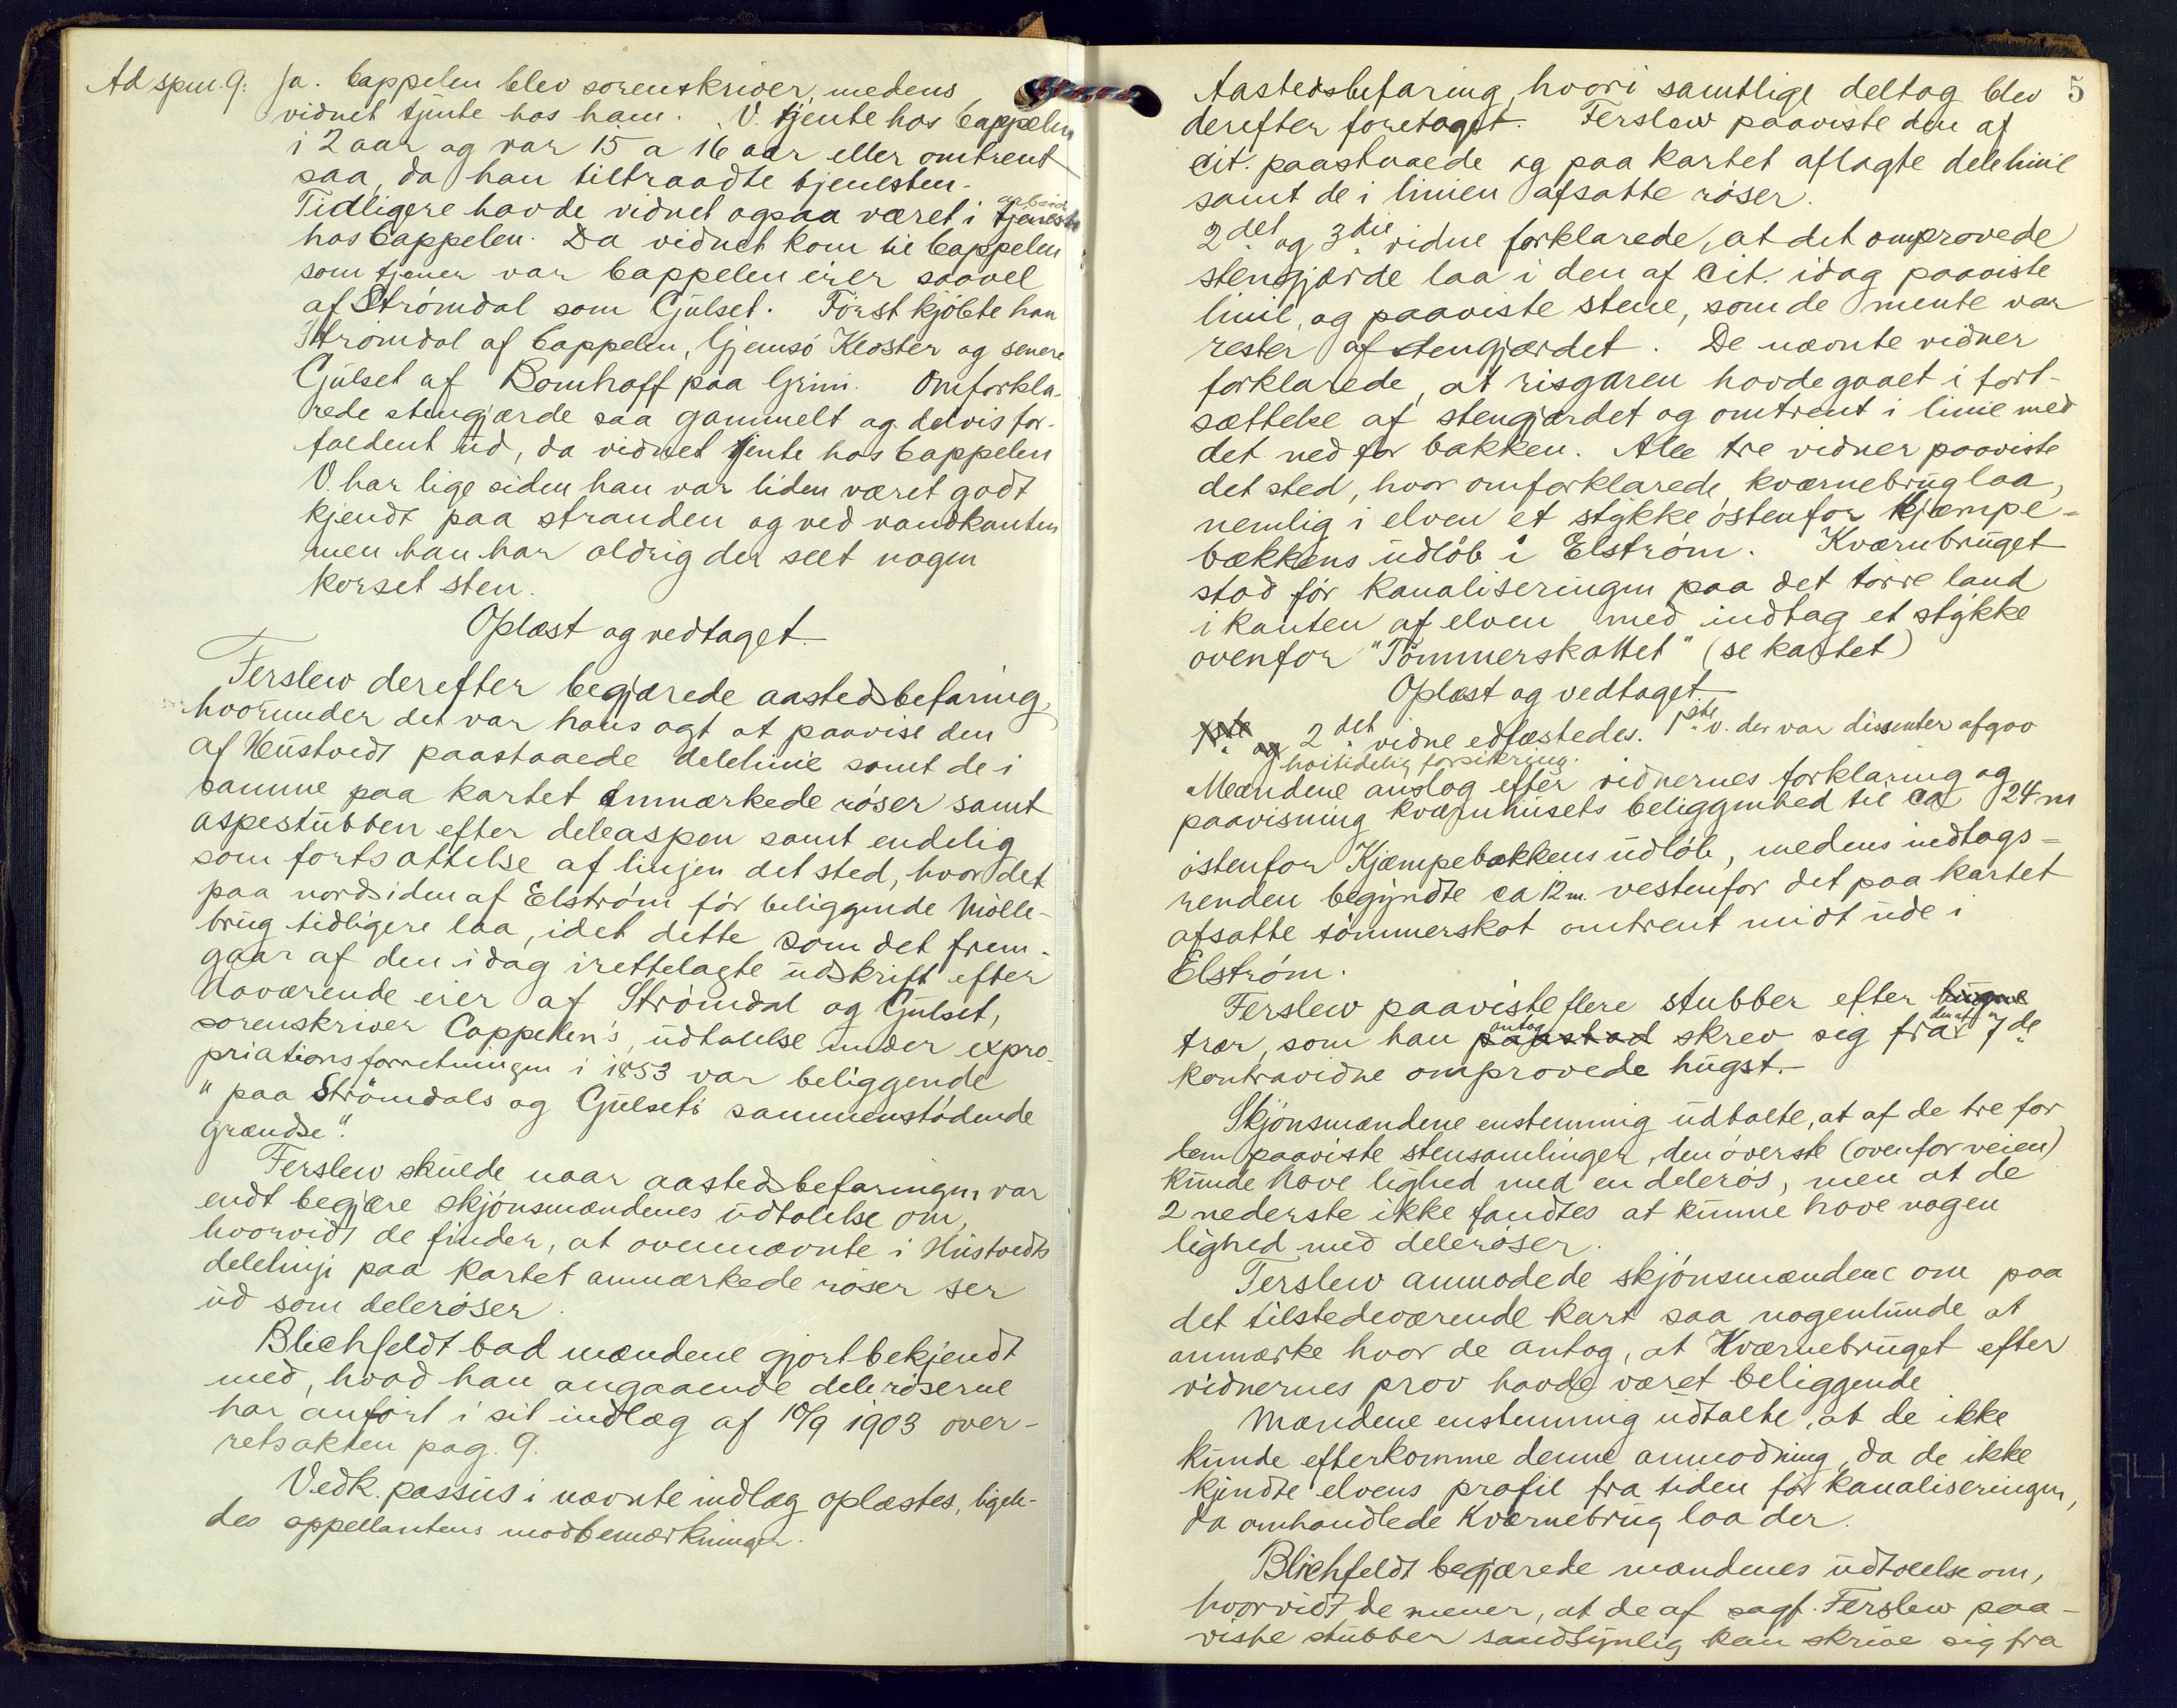 Ad spm. 9: Ja. Cappelen blev sorenskriver, medens
vidnet tjente hos ham. V. tjente hos Cappelen
i 2 aar og var 15 a 16 aar eller omtrent
saa, da han tiltraadte tjenesten.
Tidligere havde vidnet ogsaa været i arbeide
hos Cappelen. Da vidnet kom til Cappelen
som tjener var Cappelen eier saavel
af Strømdal som Gjulset. Først kjøbte han
Strømdal af Cappelen, Gjemsø Kloster og senere
Gjulset af Bomhoff paa Grini. Omforkla-
rede stengjærde saa gammelt og delvis for-
faldent ud, da vidnet tjente hos Cappelen
V. har lige siden han var liden været godt
kjendt paa stranden og ved vandkanten
men han har aldrig der seet nogen
korset sten.
Oplæst og vedtaget.
Ferslew derefter begjærede aastedsbefaring,
hvorunder det var hans agt at paavise den
af Hustvedt paastaaede delelinie samt de i
samme paa kartet anmærkede røser samt
aspestubben efter deleaspen samt endelig
som fortsættelse af linjen det sted, hvor det
paa nordsiden af Elstrøm før beliggende Mølle-
brug tidligere laa, idet dette som det frem-
gaar af den idag irettelagte udskrift efter
daværende eier af Strømdal og Gjulset,
sorenskriver Cappelen's, udtalelse under expro-
priationsforretningen i 1853 var beliggende
"paa Strömdals og Gjulsets sammenstødende
Grændse".
Ferslew skulde naar aastedsbefaringen var
endt begjære skjønsmændenes udtalelse om,
hvorvidt de finder, at ovennævnte i Hustvedts
delelinje paa kartet anmærkede røser ser
ud som delerøser.
Blichfeldt bad mændene gjort bekjendt
med, hvad han angaaende delerøserne
har anført i sit indlæg af 10/9 1903 over-
retsakten pag. 9.
Vedk. passus i nævnte indlæg oplæstes, ligele-
des appellantens modbemærkninger.
5
Aastedsbefaring, hvori samtlige deltog blev
derefter foretaget. Ferslew paaviste den af
Cit. paastaaede og paa kartet aflagte delelinie
samt de i linien afsatte røser.
2det og 3die vidne forklarede, at det omprovede
stengjærde laa i den af Cit. idag paaviste
linie, og paaviste stene, som de mente var
rester af stengjærdet. De nævnte vidner
forklarede, at risgaren havde gaaet i fort-
sættelse af stengjærdet og omtrent i linie med
det ned for bakken. Alle tre vidner paaviste
det sted, hvor omforklarede kværnebrug laa,
nemlig i elven et stykke østenfor Kjæmpe-
bækkens udløb i Elstrøm. Kværnbruget
stod før kanaliseringen paa det tørre land
i kanten af elven med indtag et stykke
ovenfor "Tömmerskottet" (se kartet)
Oplæst og vedtaget.
1ste og 2det vidne edfæstedes. 1ste v. der var dissenter afgav
høitidelig forsikring.
Mændene anslog efter vidnernes forklaring og
paavisning kværnhusets beliggenhed til ca 24 m
østenfor Kjæmpebækkens udløb, medens indtags-
renden begyndte ca 12 m. vestenfor det paa kartet
afsatte tømmerskot omtrent midt ude i
Elstrøm.
Ferslew paaviste flere stubber efter
trær, som han antog skrev sig fra den af 7de
kontravidne omprovede hugst.
Skjønsmændene enstemmig udtalte, at af de tre for
dem paaviste stensamlinger, den øverste (ovenfor veien)
kunde have lighed med en delerøs, men at de
2 nederste ikke fandtes at kunne have nogen
lighed med delerøser.
Ferslew anmodede skjønsmændene om paa
det tilstedeværende kart saa nogenlunde at
anmærke hvor de antog, at Kværnebruget efter
vidnernes prov havde været beliggende
Mændene enstemmig udtalte, at de ikke
kunde efterkomme denne anmodning, da de ikke
kjendte elvens profil fra tiden før kanaliseringen,
da omhandlede Kværnebrug laa der.
Blichfeldt begjærede mændenes udtalelse om,
hvorvidt de mener, at de af sagf. Ferslew paa-
viste stubber sandsynlig kan skrive sig fra